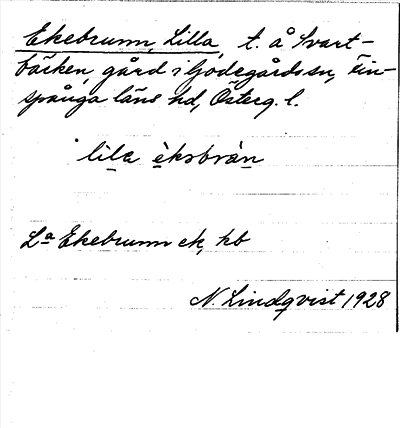 Ekebrunn, Lilla, t. å Svart-
bäcken, gård i Godegårds sn, Fin-
spånga läns hd, Österg. l.
lila èksbràn
La Ekebrunn ek, kb
N. Lindqvist 1928